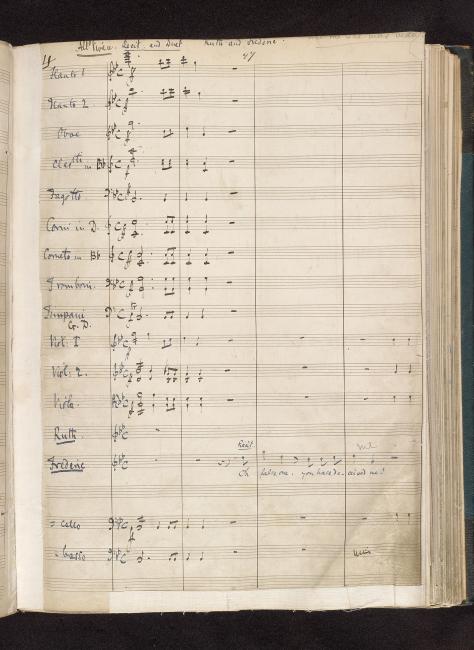 4
All° Vivace. Recit. and Duet Ruth and Frederic.
47
Flauto 1
Flauto 2
Oboe
in Bb
Fagotto
Corni in D.
Cornets in Bb
Tromboni
Timpani
G. D.
Viol. I
Viol. 2.
Viola
Ruth.
Frederic
Recit.
Oh false one, you have de - ceived me!
= cello
= basso
unis